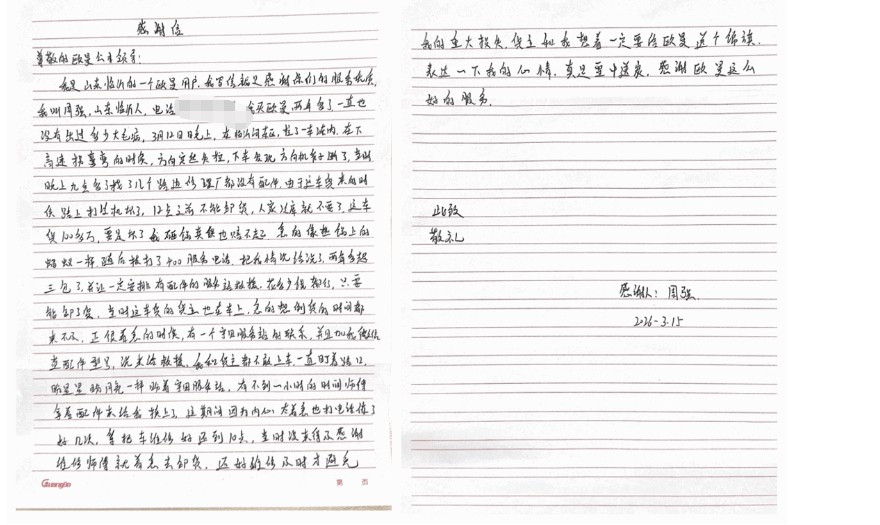 感谢信
尊敬的欧曼公司领导:
我是山东临沂的一个欧曼用户,我写信就是感谢你们的服务
我叫周强,山东临沂人,电话 买欧曼两年多了一直也
没有出过多大毛病,3月12日晚上,在临沂河东区,拉了一车 在下
高速 弯的时候,方向突然 ,下车发现方向机 了,当时
晚上九点多了找了几个路边修理厂都没有配件,由于这车货来的时
候路上 坏了,12点之前不能卸货,人家仓库就不要了,这车
货100多万,要是坏了我砸锅卖铁也赔不起,急的像热锅上的
蚂蚁一样随后拨打了400服务电话,把我情况 两年多超
三包了, 一定要排有配件的服务站救援,花多少钱都行,只要
能卸了货,当时这车货的货主也在车上,急的想倒货的时间都
来不及,正很着急的时候,有一个 服务站的联系,并且加我微信
查配件型号,说来给救援,我和货主都不敢上车,一直盯着路口,
盼星星盼月亮一样盼着 服务站,有不到一小时的时间师傅
拿着配件来给我换上了,这期间因为内心太着急也打电话催了
好几次,等把车维修好还到10点,当时没来得及感谢
维修师傅就着急去卸货,还好维修及时才避免
Guangbo
第 页
我的重大损失,货主和我想着一定要给欧曼送个锦旗,
表达一下我的心情,真是雪中送炭,感谢欧曼这么
好的服务.
此致
敬礼
感谢人:周强
2026-3.15